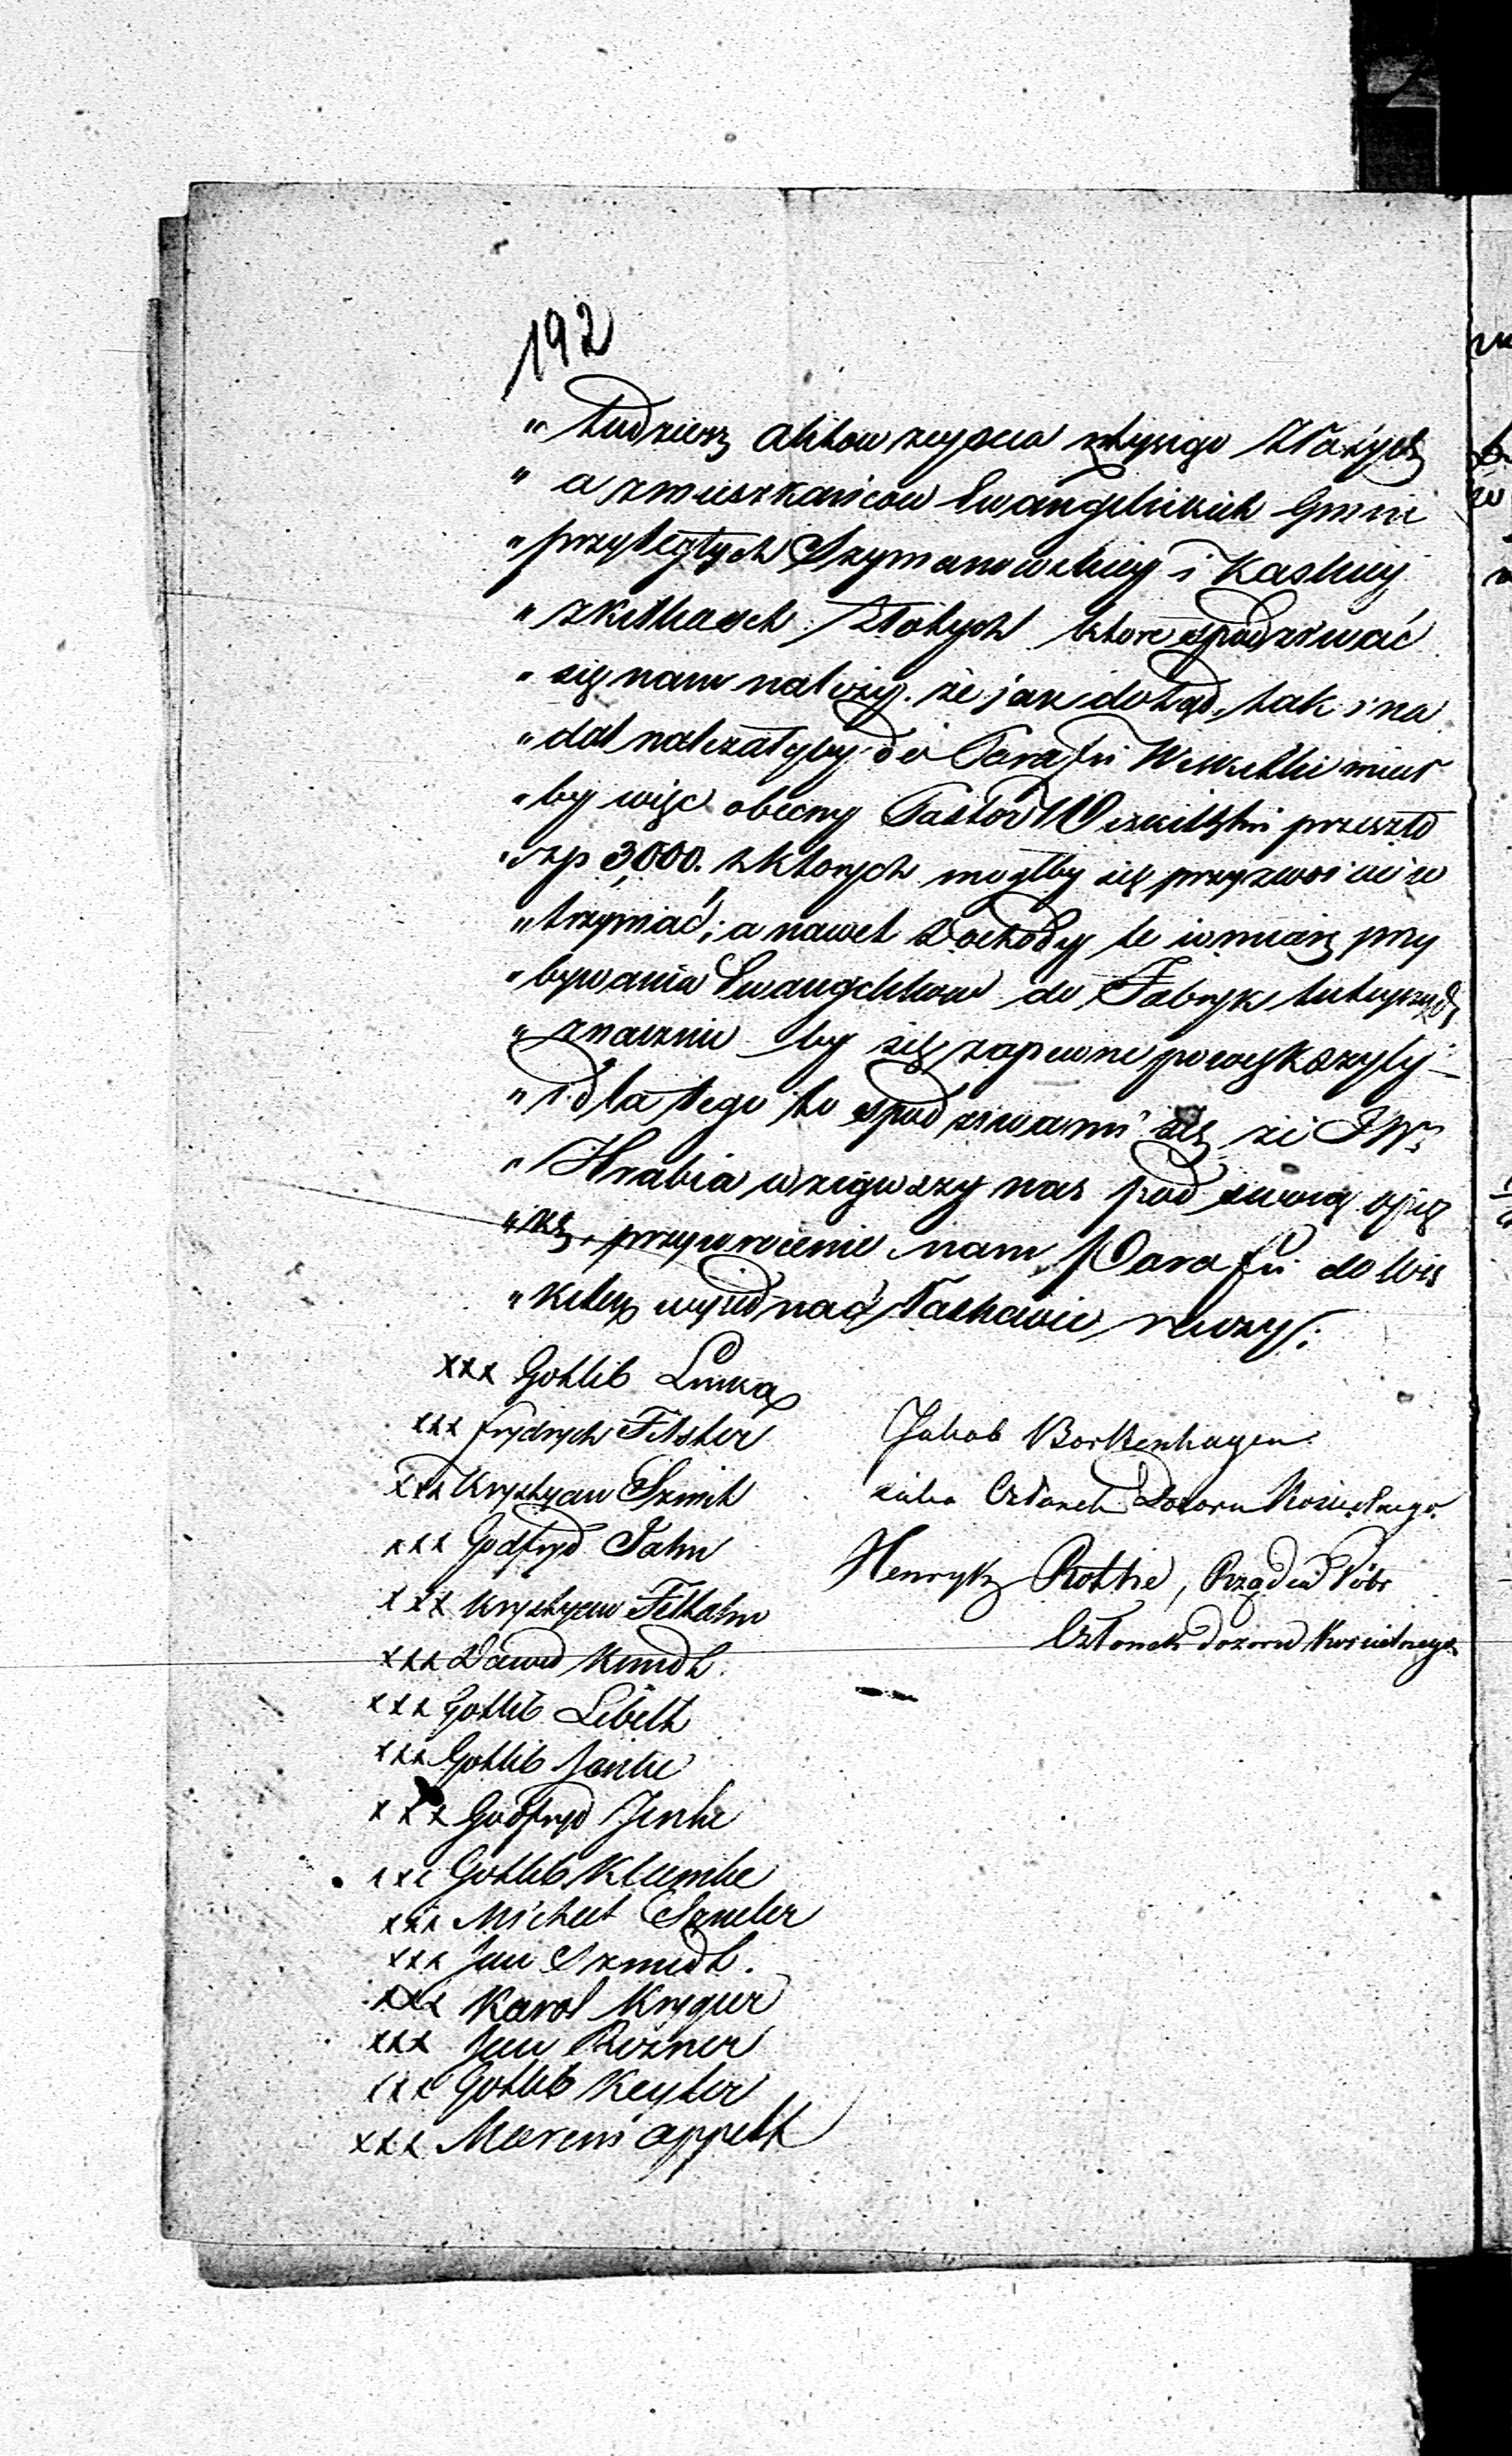 192
„ tudzież aktów zejścia
„ a zmieszkańców Ewangelickich Gmin
„ przyległych Szymanowskiey i Kaskiey
„ Złotych które spodziewać
„ się nam należy. że jak dotąd, tak i na
„ dal należałyby do Parafii Wiskitki miał
„ by więc obecny Pastor Wiskitski przeszło
„ złp 3,000. z których mógłby się przyzwoicie u
„ trzymać; a nawet dochody te wmiarę przy
„ bywania Ewangelików do Fabryk tutejszych
„ znacznie by się zapewne powiększyły
„ i dla tego to spodziewamy się że JW
„ Hrabia wziąwszy nas pod swoią opie
„ kę, przywrócenie nam Parafii do Wis
„ kitek wyiednać łaskawie raczy.
xxx Gotlib Linka
xxx frydrych Fitsker
xxx Krystyan Szmit
xxx Godfryd Jahn
xxx Krystyan
xxx Dawid
xxx Gotlib Libelt
xxx Gotlib Jantie
xxx Godfryd Jenke
xxx Gotlib Klemke
xxx Michał Szmeler
xxx Jan Szmidt.
xxx Karol Krygier
xxx Jan Rezner
xxx Gotlib Keyler
xxx Marcin appelt
Jakob Borkenhagen
Członek Dozoru Kościelnego.
Henryk Rothe, Rządca Dóbr
Członek dozoru Kościelnego